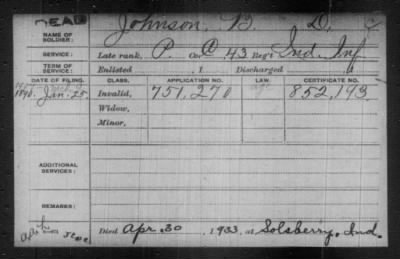 DEAD
NAME OF SOLDIER: Johnson, B. D.
SERVICE: Late rank, P. Co. C, 43 Reg't Ind. Inf
TERM OF SERVICE: Enlisted , 1 Discharged , 1
DATE OF FILING. CLASS. APPLICATION NO. LAW. CERTIFICATE NO.
1890. Jan. 25 Invalid, 751,270 852,193
Widow,
Minor,
ADDITIONAL SERVICES:
REMARKS:
Died Apr. 30, 1933, at Solsberry, Ind.